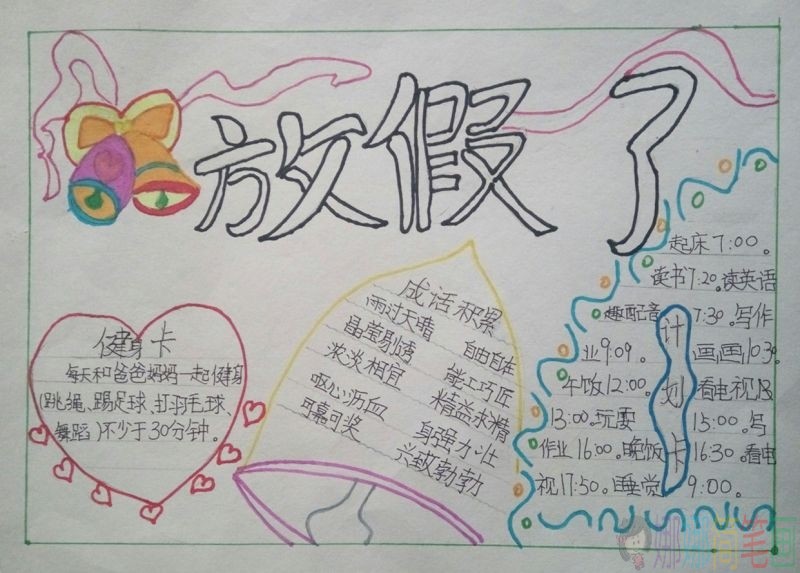 放假了
健身卡
每天和爸爸妈妈一起健身
(跳绳、踢足球、打羽毛球、
舞蹈)不少于30分钟。
成语积累
雨过天晴 自由自在
晶莹剔透 能工巧匠
浓淡相宜 精益求精
呕心沥血 身强力壮
可嘉可奖 兴致勃勃
计划卡
起床7:00。
读书7:20。读英语
趣配音 7:30。写作
业9:09。画画10:30。
午饭12:00。看电视
13:00。玩耍 15:00。写
作业16:00。晚饭 16:30。看电
视17:50。睡觉 9:00。